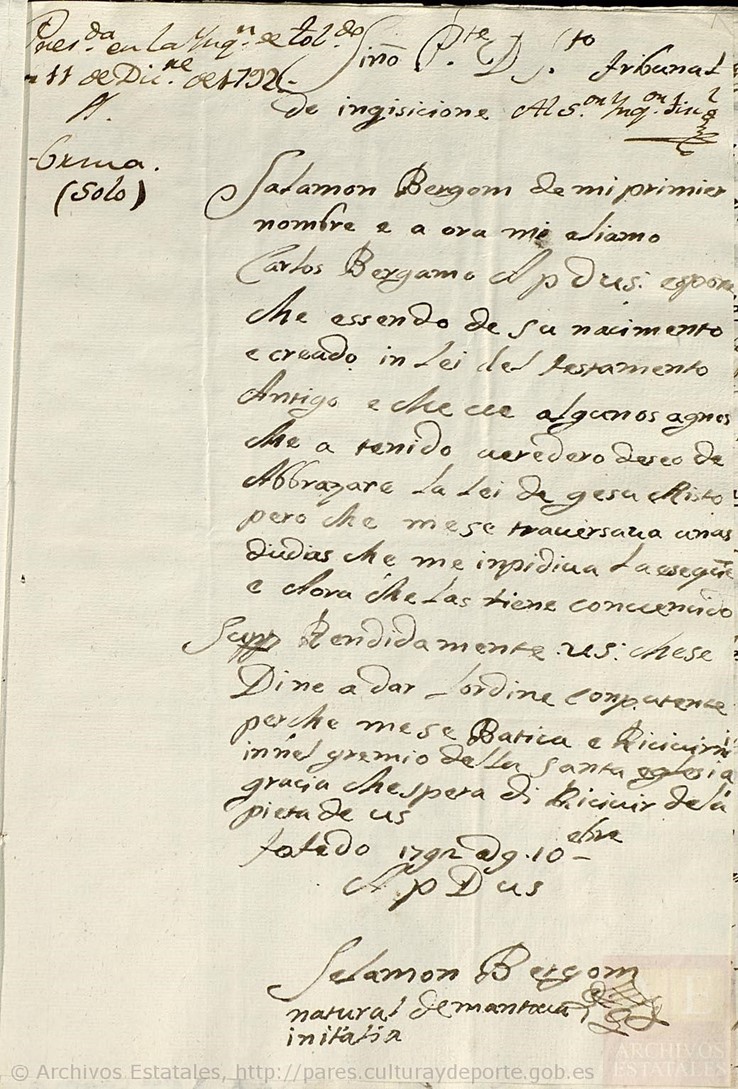 Pres.da en la Inq.n de Tol.do
en 11 de Dic.re de 1792
Sino P.te D. S.to tribunal
de ingisicione Al S.or Inq.or
(Solo)
Salamon Bergom de mi primier
nombre e a ora mi eliamo
Carlos Bergamo A p D us: espone
che essendo de su nacimento
e creado in Lei del testamento
Antigo e che ue algunos agnos
che a tenido ueredero deseo de
Abbrazare La Lei de gesu Christo
pero che me se trauersaua unas
diudias che me inpidiua
e Aora che Las tiene conuencido
Supp Rendidamente us: che se
Dine a dar Lordine conpetente
perche me se Batica e Riciuirmi
innel gremio della Santa eglesia
gracia che spera di Riciuir de la
pieta de us
toledo 1792 adg. 10 ebre
A p D us
Selamon Bergom
natural de mantoua
in italia
© Archivos Estatales, http://pares.culturaydeporte.gob.es
ARCHIVOS
ESTATALES